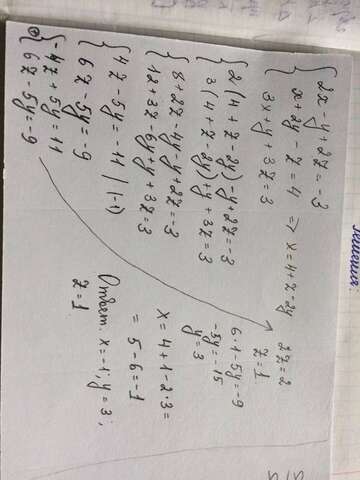 2x - y + 2z = -3
x + 2y - z = 4 ⇒ x = 4 + z - 2y
3x + y + 3z = 3
2(4 + z - 2y) - y + 2z = -3
3(4 + z - 2y) + y + 3z = 3
8 + 2z - 4y - y + 2z = -3
12 + 3z - 6y + y + 3z = 3
4z - 5y = -11 | (-1)
6z - 5y = -9
⊕ -4z + 5y = 11
6z - 5y = -9
2z = 2
z = 1
6·1 - 5y = -9
-5y = -15
y = 3
x = 4 + 1 - 2·3 =
= 5 - 6 = -1
Ответ: x = -1; y = 3;
z = 1